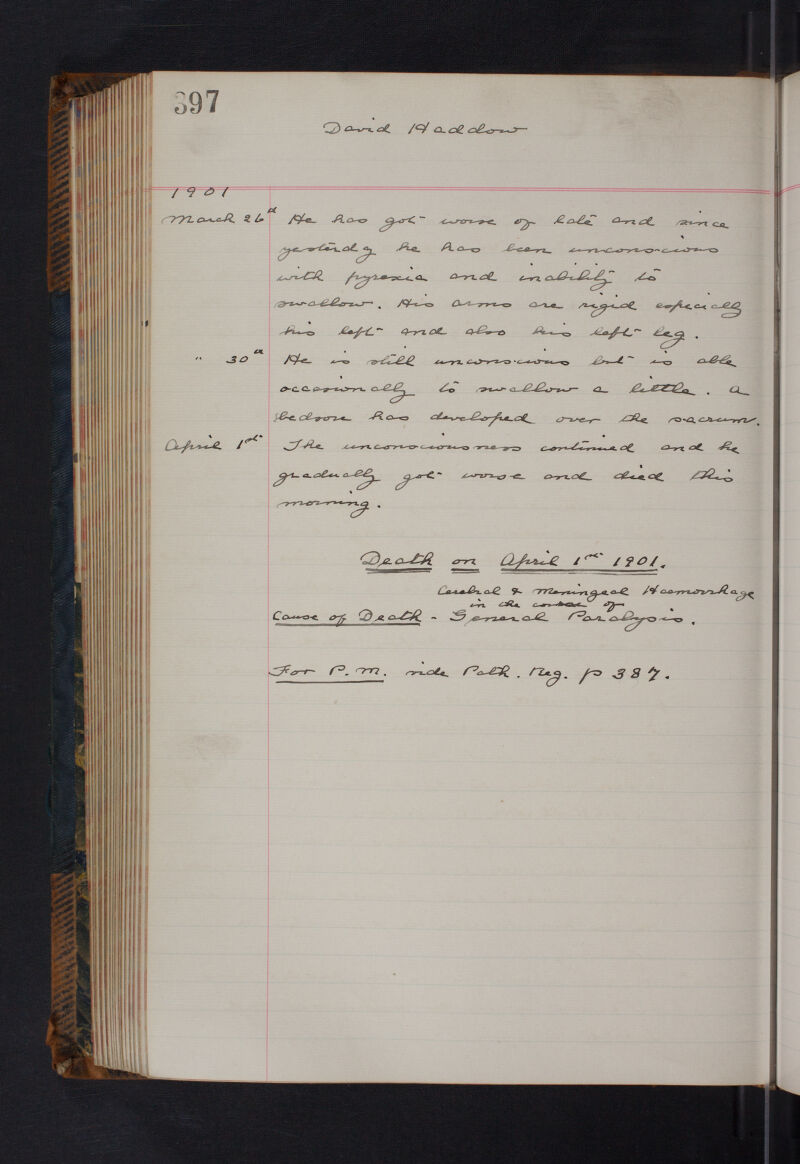 397
David Haddow
1901
March 26th He has got worse of late and since
yesterday he has been unconscious
with pyrexia and inability to
swallow. His arms are rigid especially
his left and also his left leg.
" 30th He is still unconscious but is able
occasionally to swallow a little. A
bedsore has developed over the sacrum.
April 1st The unconsciousness continued and he
gradually got worse and died this
morning.
Death on April 1st 1901.
Cerebral & Meningeal Haemorrhage
in the course of
Cause of Death - General Paralysis.
For P.M. vide Path. Reg. p 387.